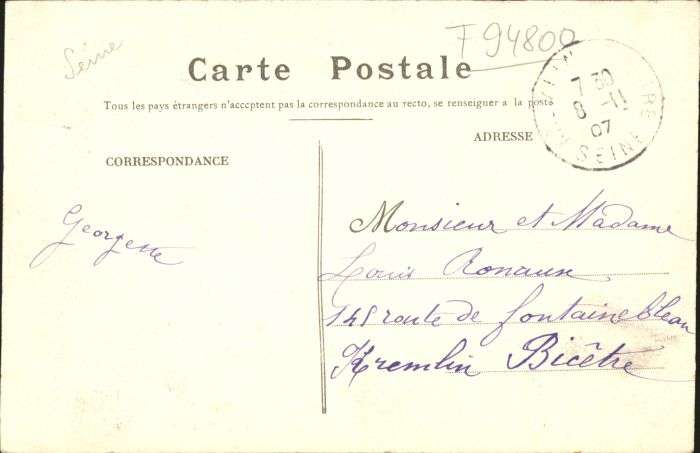 Seine
F 94800
Carte Postale
Tous les pays étrangers n'acceptent pas la correspondance au recto, se renseigner a la poste
CORRESPONDANCE
ADRESSE
7 30
8 - 11
07
SEINE
Georgette
Monsieur et Madame
Louis
141 route de fontainebleau
Kremlin Bicêtre